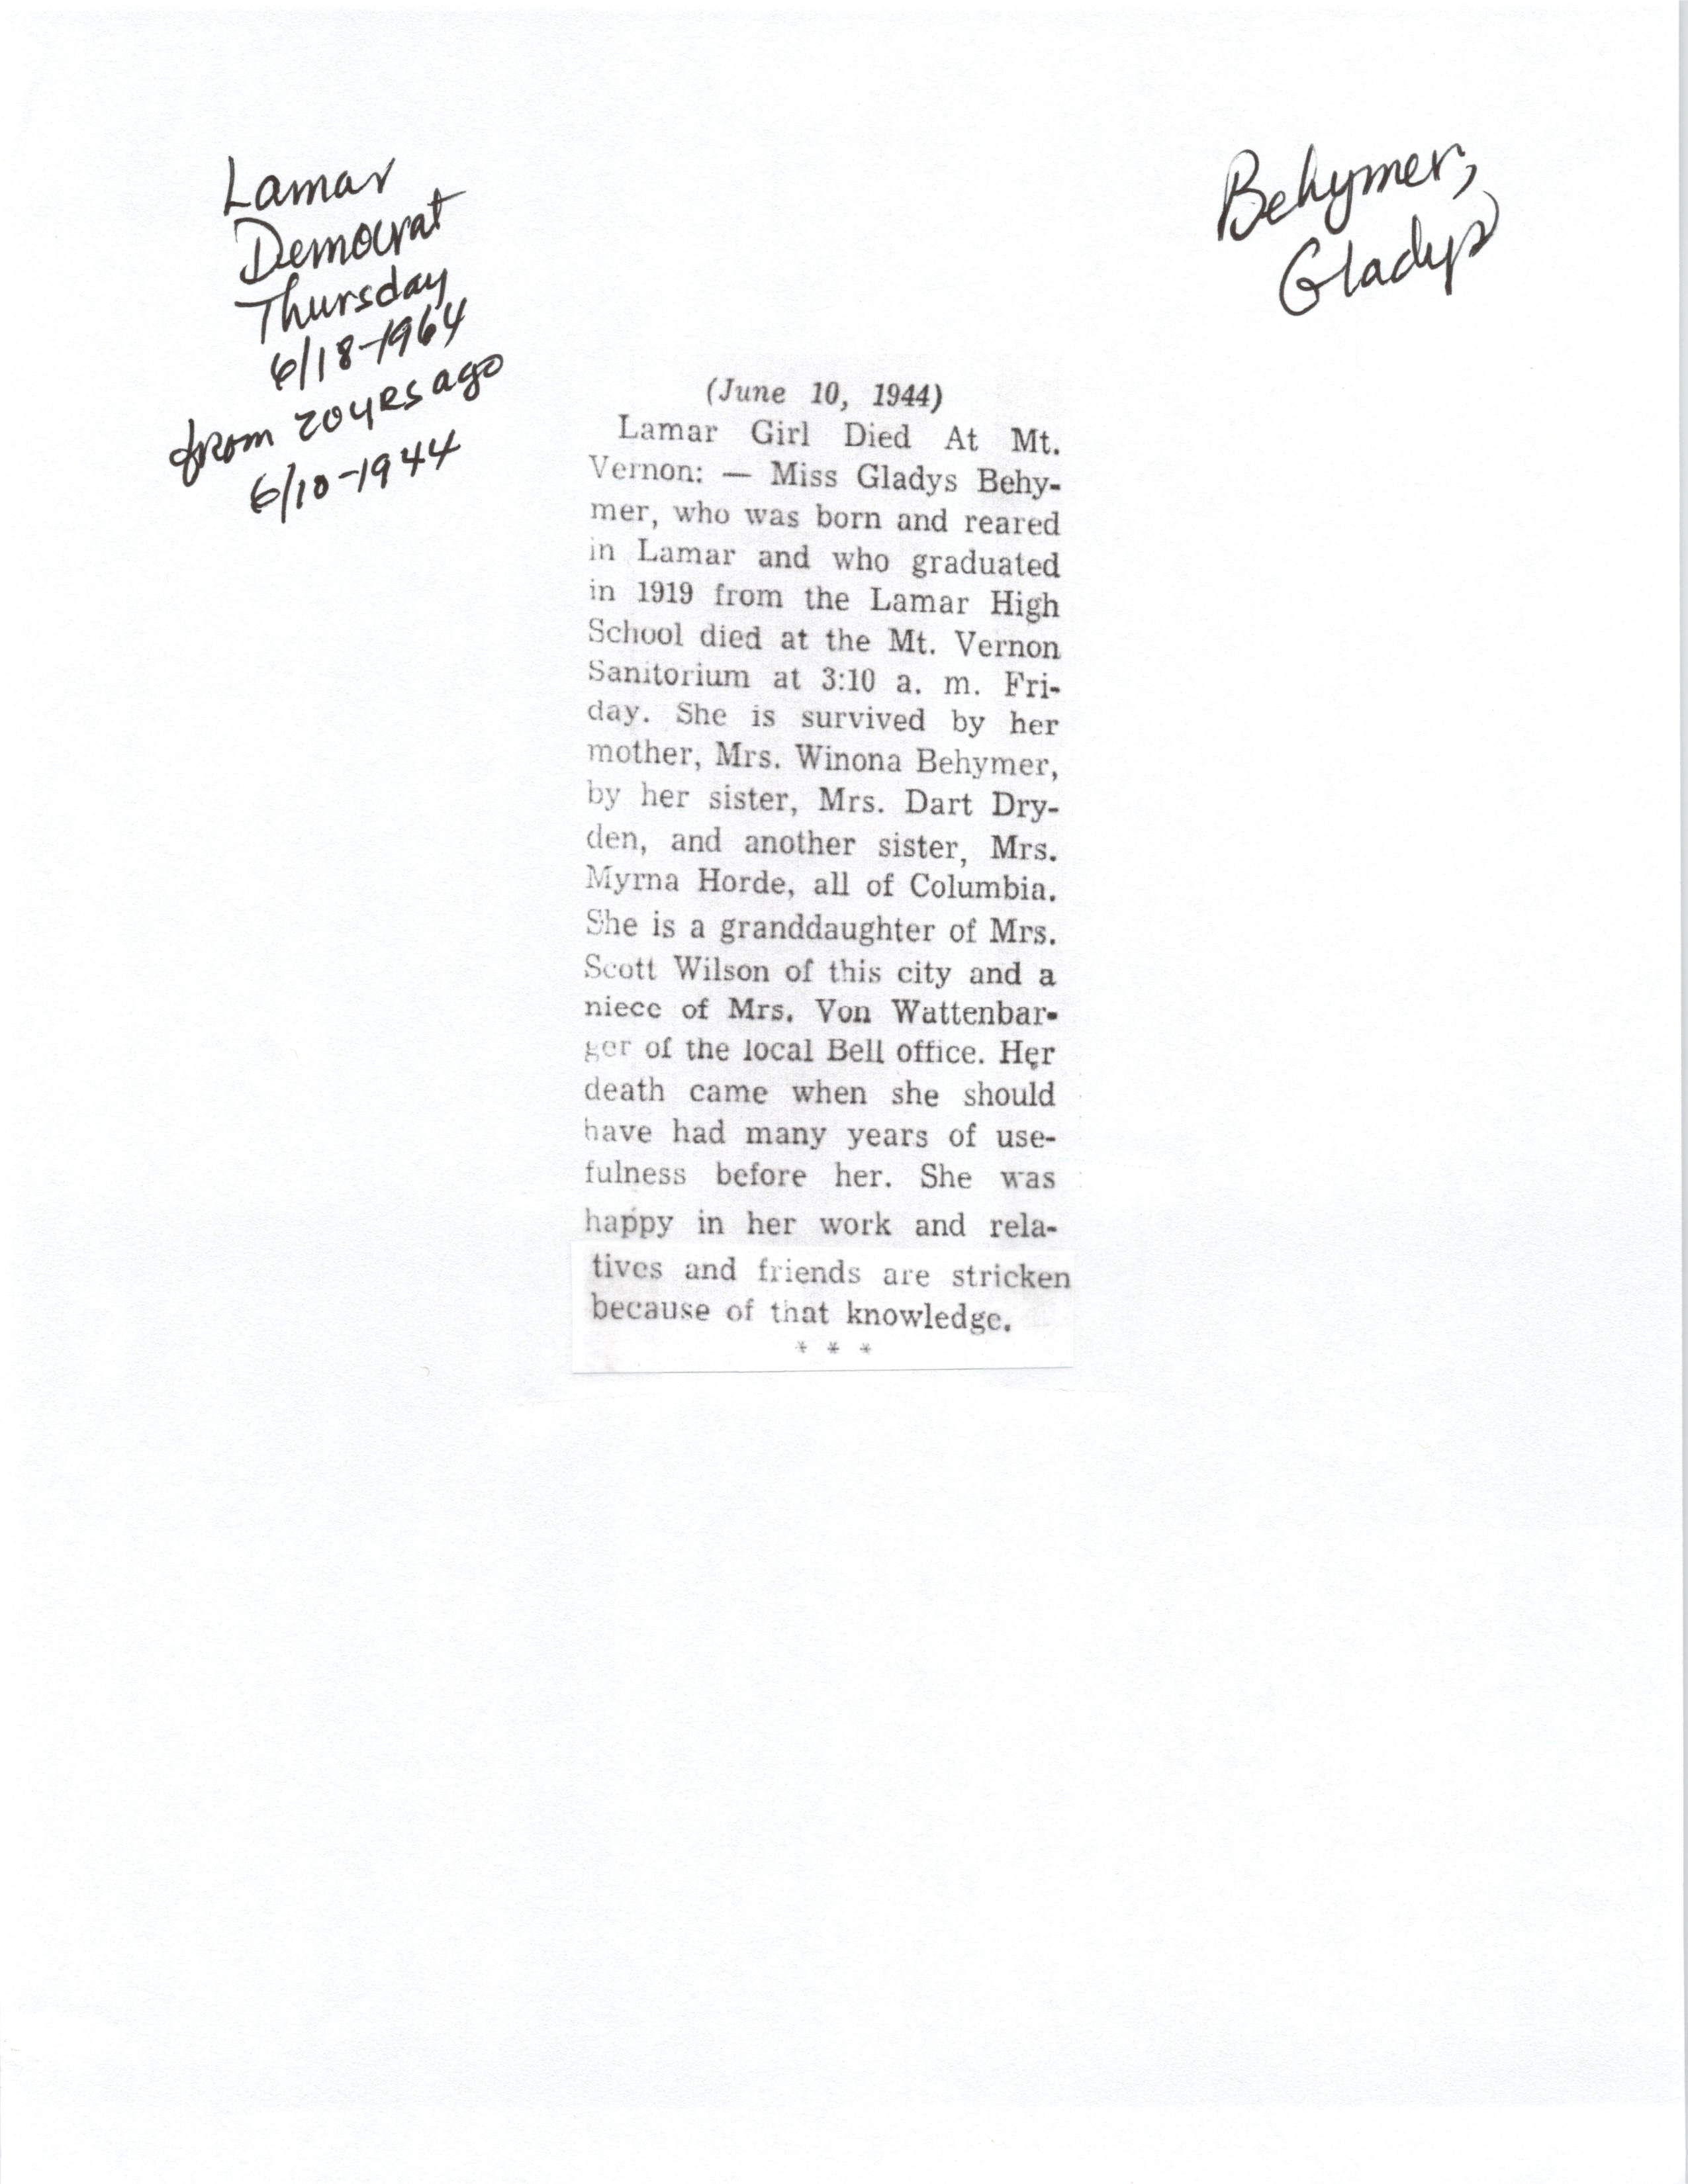 Lamar
Democrat
Thursday
6/18-1964
from 20 yrs ago
6/10-1944
Behymer,
Gladys
(June 10, 1944)
Lamar Girl Died At Mt.
Vernon: — Miss Gladys Behy-
mer, who was born and reared
in Lamar and who graduated
in 1919 from the Lamar High
School died at the Mt. Vernon
Sanitorium at 3:10 a. m. Fri-
day. She is survived by her
mother, Mrs. Winona Behymer,
by her sister, Mrs. Dart Dry-
den, and another sister, Mrs.
Myrna Horde, all of Columbia.
She is a granddaughter of Mrs.
Scott Wilson of this city and a
niece of Mrs. Von Wattenbar-
ger of the local Bell office. Her
death came when she should
have had many years of use-
fulness before her. She was
happy in her work and rela-
tives and friends are stricken
because of that knowledge.
* * *